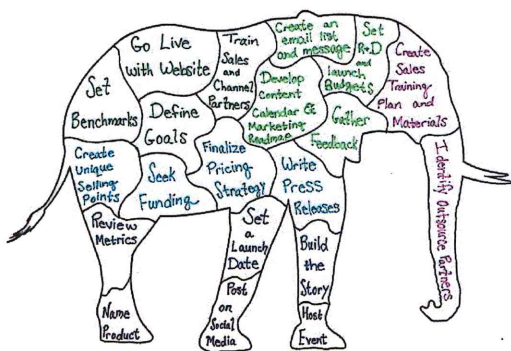 Go Live
with Website
Train
Sales
and
Channel
Partners
Create an
email list
and message
Set
R+D
and
Launch
Budgets
Create
Sales
Training
Plan and
Materials
Set
Benchmarks
Define
Goals
Develop
Content
Calendar &
Marketing
Roadmap
Gather
Feedback
Create
Unique
Selling
Points
Seek
Funding
Finalize
Pricing
Strategy
Write
Press
Releases
Identify Outsource Partners
Review
Metrics
Set
a
Launch
Date
Build
the
Story
Name
Product
Post
on
Social
Media
Host
Event